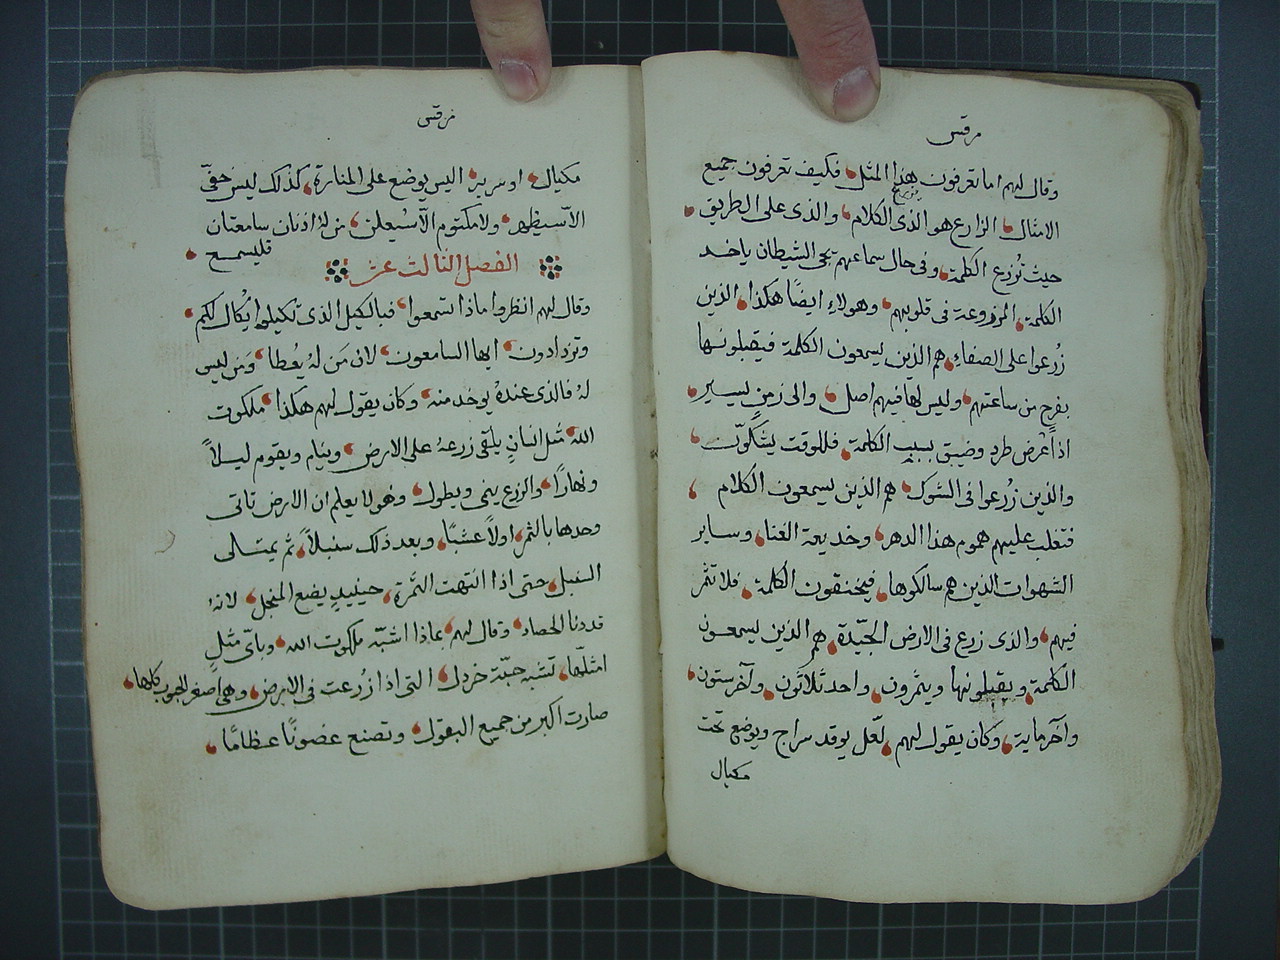 مرقس
وقال لهم اما تعرفون هذا المثل فكيف تعرفون جميع
الامثال الزارع هو الذى يزرع الكلام والذى على الطريق
حيث تُزرع الكلمة وفى حال سماعهم يجى الشيطان ياخد
الكلمة المزروعة فى قلوبهم وهولاءِ ايضًا هكذا الذين
زُرعوا على الصفاءِ هم الذين يسمعون الكلمة فيقبلونها
بفرحٍ من ساعتهم وليس لها فيهم اصل والى زمنٍ يسير
اذا عرض طرد وضيق بسبب الكلمة فللوقت يشكّون
والذين زُرعوا فى الشوك هم الذين يسمعون الكلام
فتغلب عليهم هموم هذا الدهر وخديعة الغنا وساير
الشهوات الذين هم سالكوها فيخنقون الكلمة فلا تثمر
فيهم والذى زرع فى الارض الجيّدة هم الذين يسمعون
الكلمة ويقبلونها ويثمرون واحد ثلاثون وآخر ستون
وآخر ماية وكان يقول لهم لعّل يوقد سراج ويوضع تحت
مكيال
مرقس
مكيال او سرير اليس يوضع على المنارة كذلك ليس خفىّ
الآسيظهر ولا مكتوم الآسيعلن من لهُ اذنان سامعتان
فليسمع
الفصل الثالث عشر
وقال لهم انظروا ماذا تسمعوا فبالكيل الذى تكيلوا يُكال لكم
وتزدادون ايها السامعون لان مَن لهُ يُعطا ومَن ليس
لهُ فالذى عندهُ يوخد منه وكان يقول لهم هكذا ملكوت
الله مثل انسانٍ يلقى زرعهُ على الارض وينام ويقوم ليلاً
ونهارًا والزرع ينمى ويطول وهو لا يعلم ان الارض تاتى
وحدها بالثمر اولاً عشبًا وبعد ذلك سنبلاً ثم يمتلى
السنبل حتى اذا انتهت الثمرة حينيدٍ يضع المنجل لانهُ
قد دنا الحصاد وقال لهم بماذا اشبّه ملكوت الله وباىّ مثلٍ
امثلّها تشبه حبّة خردل التى اذا زُرعت فى الارض وهى اصغر الحبوب كلها
صارت اكبر من جميع البقول وتصنع غصونًا عظامًا